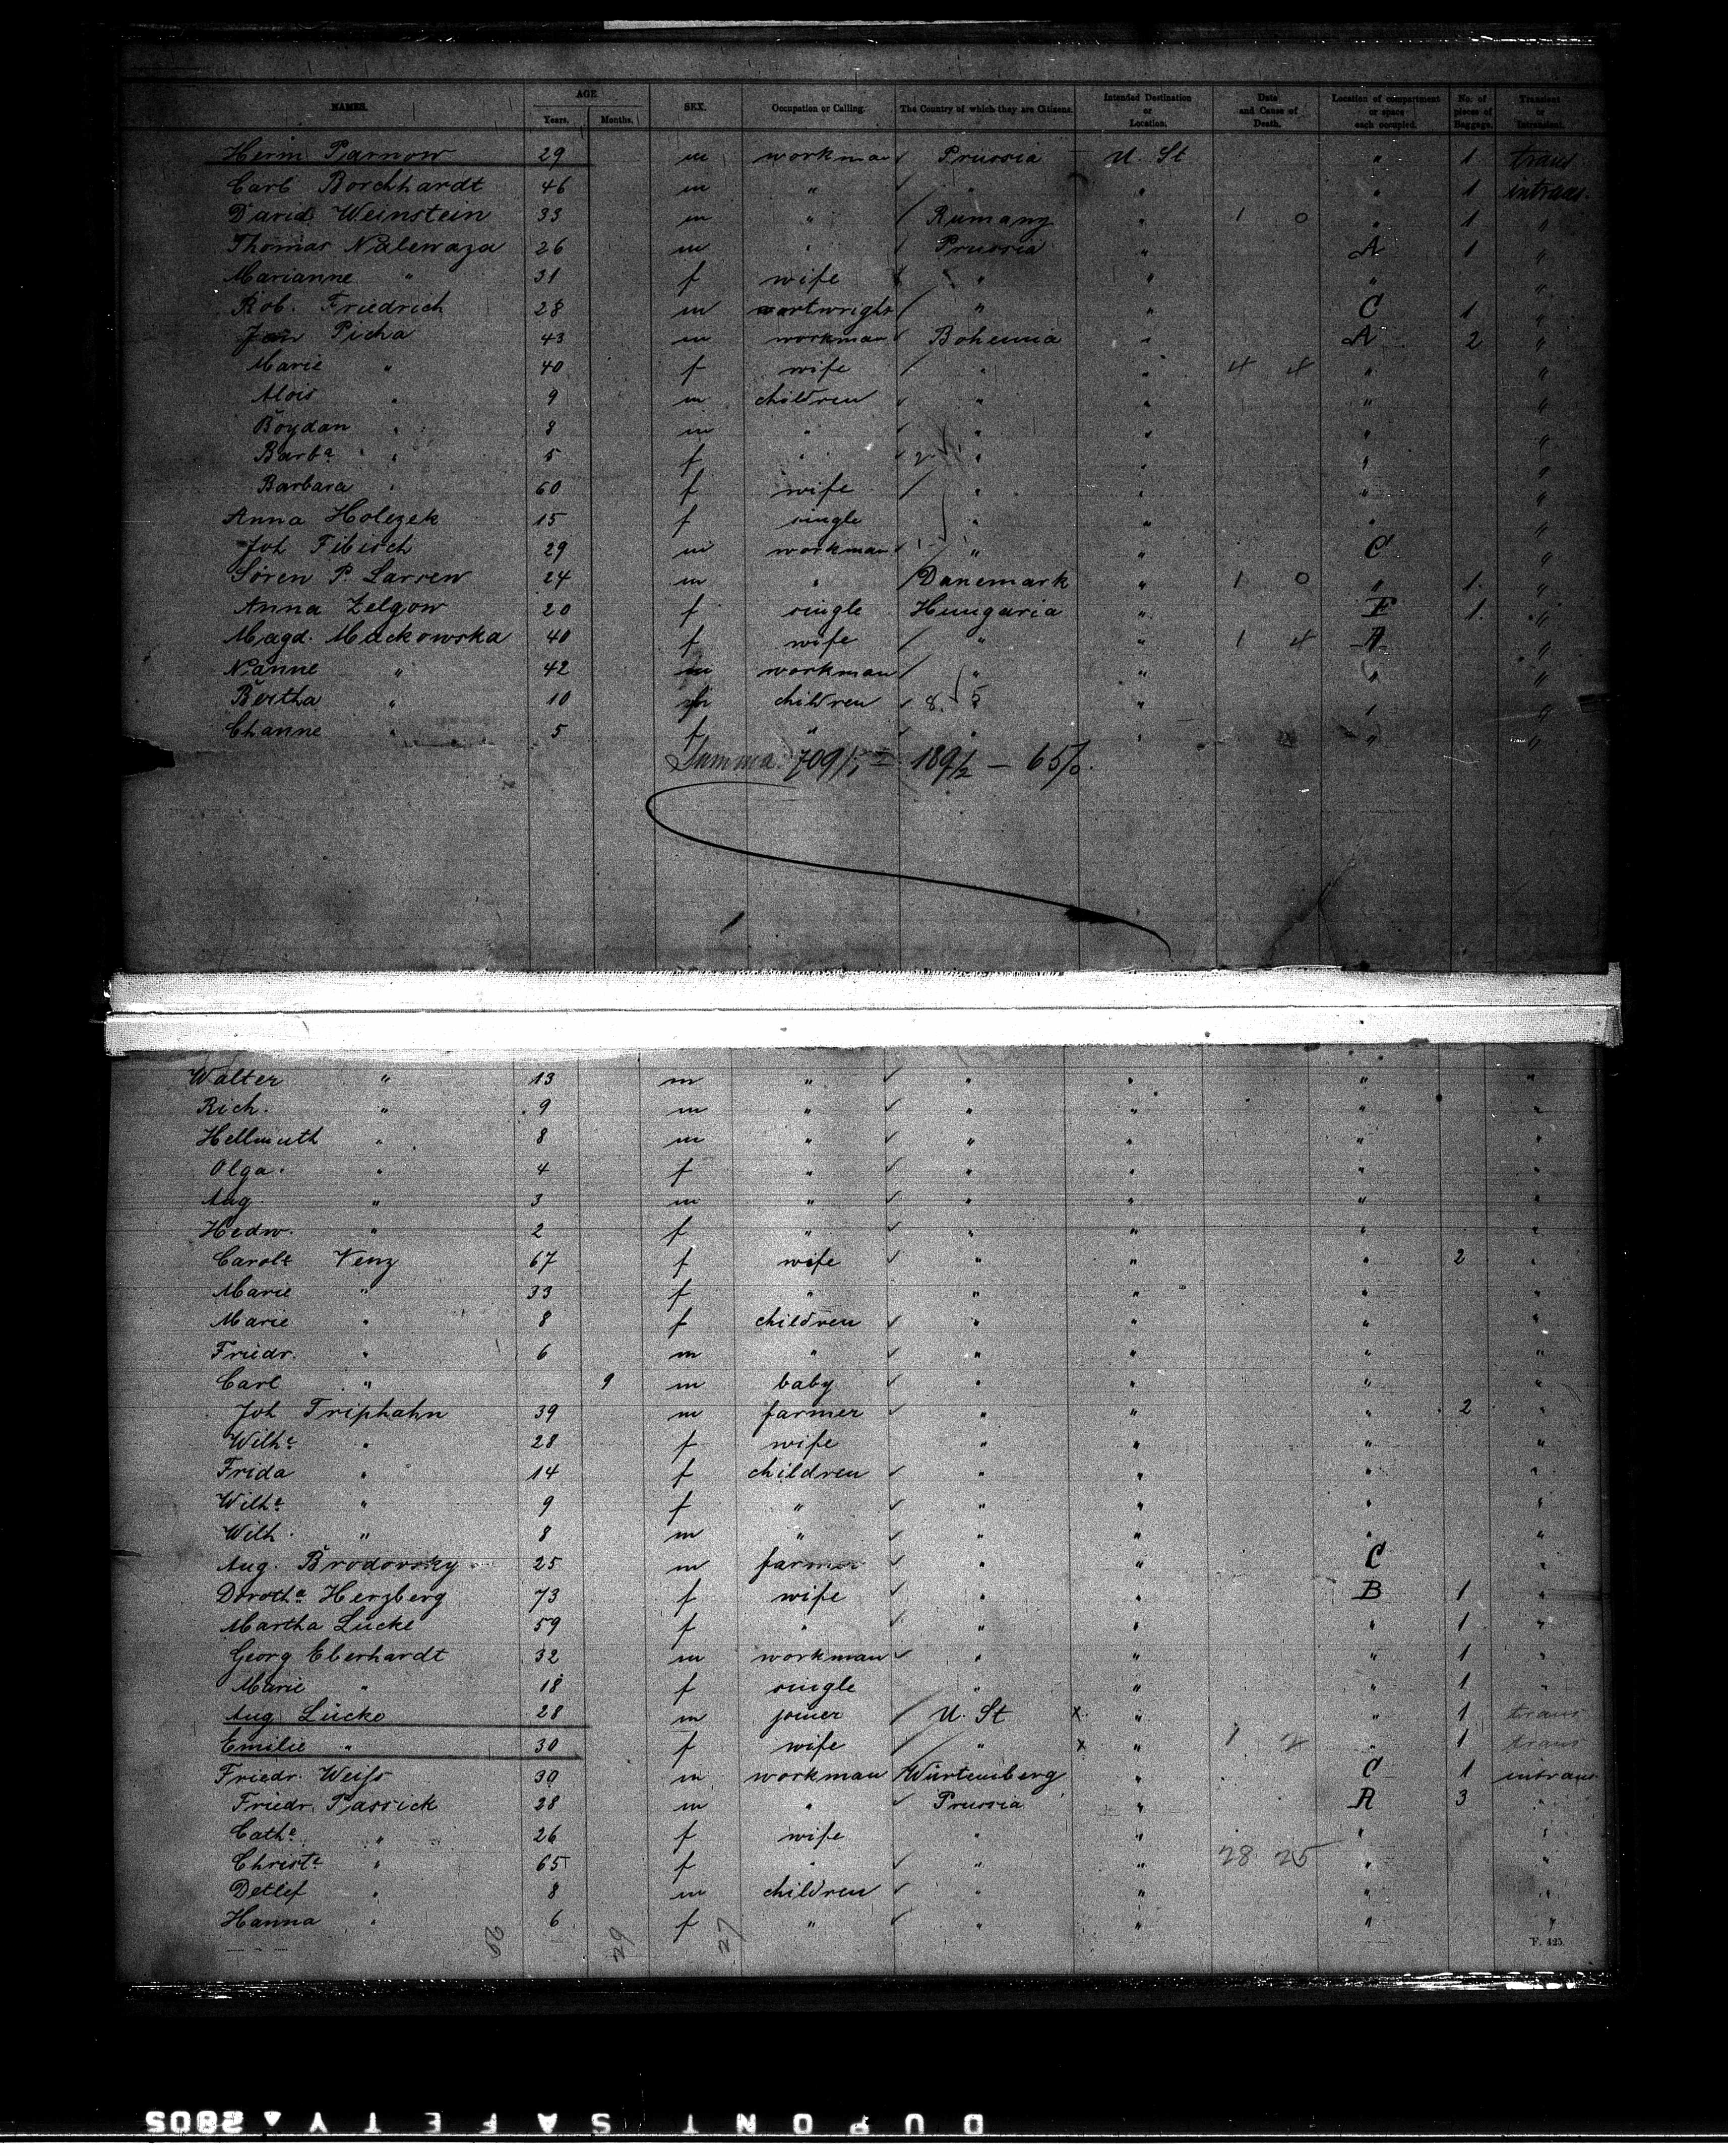 NAMES. AGE. Years. Months. SEX. Occupation or Calling. The Country of which they are Citizens. Intended Destination or Location. Date and Cause of Death. Location of compartment or space each occupied. No. of pieces of Baggage. Transient or Intransient.
Herm Parnow 29 m workman Prussia U. St " 1 trans
Carl Borchhardt 46 m " " " " 1 intrans.
David Weinstein 33 m " Rumany " 1 0 " 1 "
Thomas Nalewaza 26 m " Prussia " A 1 "
Marianne " 31 f wife " " " "
Rob. Friedrich 28 m cartwright " " C 1 "
Jan Picha 43 m workman Bohemia " A 2 "
Marie " 40 f wife " " 4 4 " "
Alois " 9 m children " " " "
Boydan " 8 m " " " " "
Barbª " 5 f " 2 " " " "
Barbara " 60 f wife " " " "
Anna Holezek 15 f single " " " "
Joh Fibisch 29 m workman " " C "
Sören P. Larsen 24 m " Danemark " 1 0 " 1. "
Anna Zelgow 20 f single Hungaria " F 1. "
Magd. Muckowska 40 f wife " " 1 4 A "
Nanne " 42 m workman " " " "
Bertha " 10 children 8. 5 " "
Channe " 5 f " " " " "
Summa: 709/ = 189/2 — 65/0.
Walter " 13 m " " " " "
Rich. " 9 m " " " " "
Hellmuth " 8 m " " " " "
Olga. " 4 f " " " " "
Aug. " 3 m " " " " "
Hedw. " 2 f " " " " "
Carolᵉ Venz 67 f wife " " " 2 "
Marie " 33 f " " " " "
Marie " 8 f children " " " "
Friedr. " 6 m " " " " "
Carl " 9 m baby " " " "
Joh Triphahn 39 m farmer " " " 2 "
Wilhᵉ " 28 f wife " " " "
Frida " 14 f children " " " "
Wilhᵉ " 9 f " " " " "
Wilh. " 8 m " " " " "
Aug. Brodovsky 25 m farmer " " C "
Dorothª Herzberg 73 f wife " " B 1 "
Martha Lücke 59 f " " " " 1 "
Georg Eberhardt 32 m workman " " " 1 "
Marie " 18 f single " " " 1 "
Aug. Lücke 28 m joiner U. St x " " 1 trans
Emilie " 30 f wife " x " 1 2 " 1 trans
Friedr. Weiſs 30 m workman Würtemberg " C 1 intrans
Friedr. Passick 28 m " Prussia " A 3 "
Cathª " 26 f wife " " " "
Christᵉ " 65 f " " " 28 25 " "
Detlef " 8 m children " " " "
Hanna " 6 f " " " " "
29 27
F. 425.
DUPONT SAFETY ▲ 2805